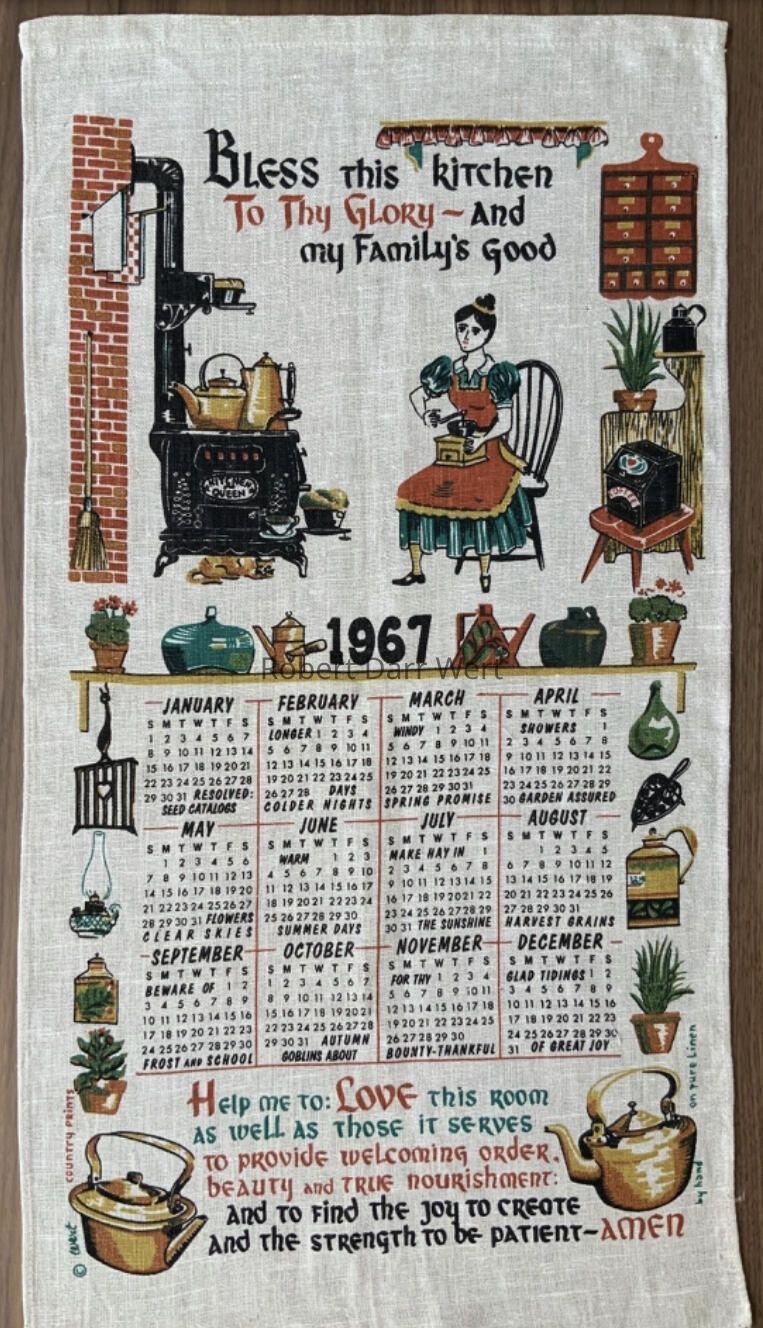 Bless this kitchen
To Thy Glory ~ and
my Family's Good
KITCHEN QUEEN
COFFEE
1967
Robert Darr Wert
JANUARY
S M T W T F S
1 2 3 4 5 6 7
8 9 10 11 12 13 14
15 16 17 18 19 20 21
22 23 24 25 26 27 28
29 30 31 RESOLVED:
SEED CATALOGS
FEBRUARY
S M T W T F S
LONGER 1 2 3 4
5 6 7 8 9 10 11
12 13 14 15 16 17 18
19 20 21 22 23 24 25
26 27 28 DAYS
COLDER NIGHTS
MARCH
S M T W T F S
WINDY 1 2 3 4
5 6 7 8 9 10 11
12 13 14 15 16 17 18
19 20 21 22 23 24 25
26 27 28 29 30 31
SPRING PROMISE
APRIL
S M T W T F S
SHOWERS 1
2 3 4 5 6 7 8
9 10 11 12 13 14 15
16 17 18 19 20 21 22
23 24 25 26 27 28 29
30 GARDEN ASSURED
MAY
S M T W T F S
1 2 3 4 5 6
7 8 9 10 11 12 13
14 15 16 17 18 19 20
21 22 23 24 25 26 27
28 29 30 31 FLOWERS
CLEAR SKIES
JUNE
S M T W T F S
WARM 1 2 3
4 5 6 7 8 9 10
11 12 13 14 15 16 17
18 19 20 21 22 23 24
25 26 27 28 29 30
SUMMER DAYS
JULY
S M T W T F S
MAKE HAY IN 1
2 3 4 5 6 7 8
9 10 11 12 13 14 15
16 17 18 19 20 21 22
23 24 25 26 27 28 29
30 31 THE SUNSHINE
AUGUST
S M T W T F S
1 2 3 4 5
6 7 8 9 10 11 12
13 14 15 16 17 18 19
20 21 22 23 24 25 26
27 28 29 30 31
HARVEST GRAINS
SEPTEMBER
S M T W T F S
BEWARE OF 1 2
3 4 5 6 7 8 9
10 11 12 13 14 15 16
17 18 19 20 21 22 23
24 25 26 27 28 29 30
FROST AND SCHOOL
OCTOBER
S M T W T F S
1 2 3 4 5 6 7
8 9 10 11 12 13 14
15 16 17 18 19 20 21
22 23 24 25 26 27 28
29 30 31 AUTUMN
GOBLINS ABOUT
NOVEMBER
S M T W T F S
FOR THY 1 2 3 4
5 6 7 8 9 10 11
12 13 14 15 16 17 18
19 20 21 22 23 24 25
26 27 28 29 30
BOUNTY-THANKFUL
DECEMBER
S M T W T F S
GLAD TIDINGS 1 2
3 4 5 6 7 8 9
10 11 12 13 14 15 16
17 18 19 20 21 22 23
24 25 26 27 28 29 30
31 OF GREAT JOY
Help me to: LOVE this room
as well as those it serves
to provide welcoming order,
beauty and true nourishment:
and to find the joy to create
and the strength to be patient~AMEN
© Wert
country prints
by hand
on pure linen